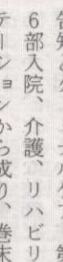 6部入院、介護、リハビリ
テーションから成り、巻末